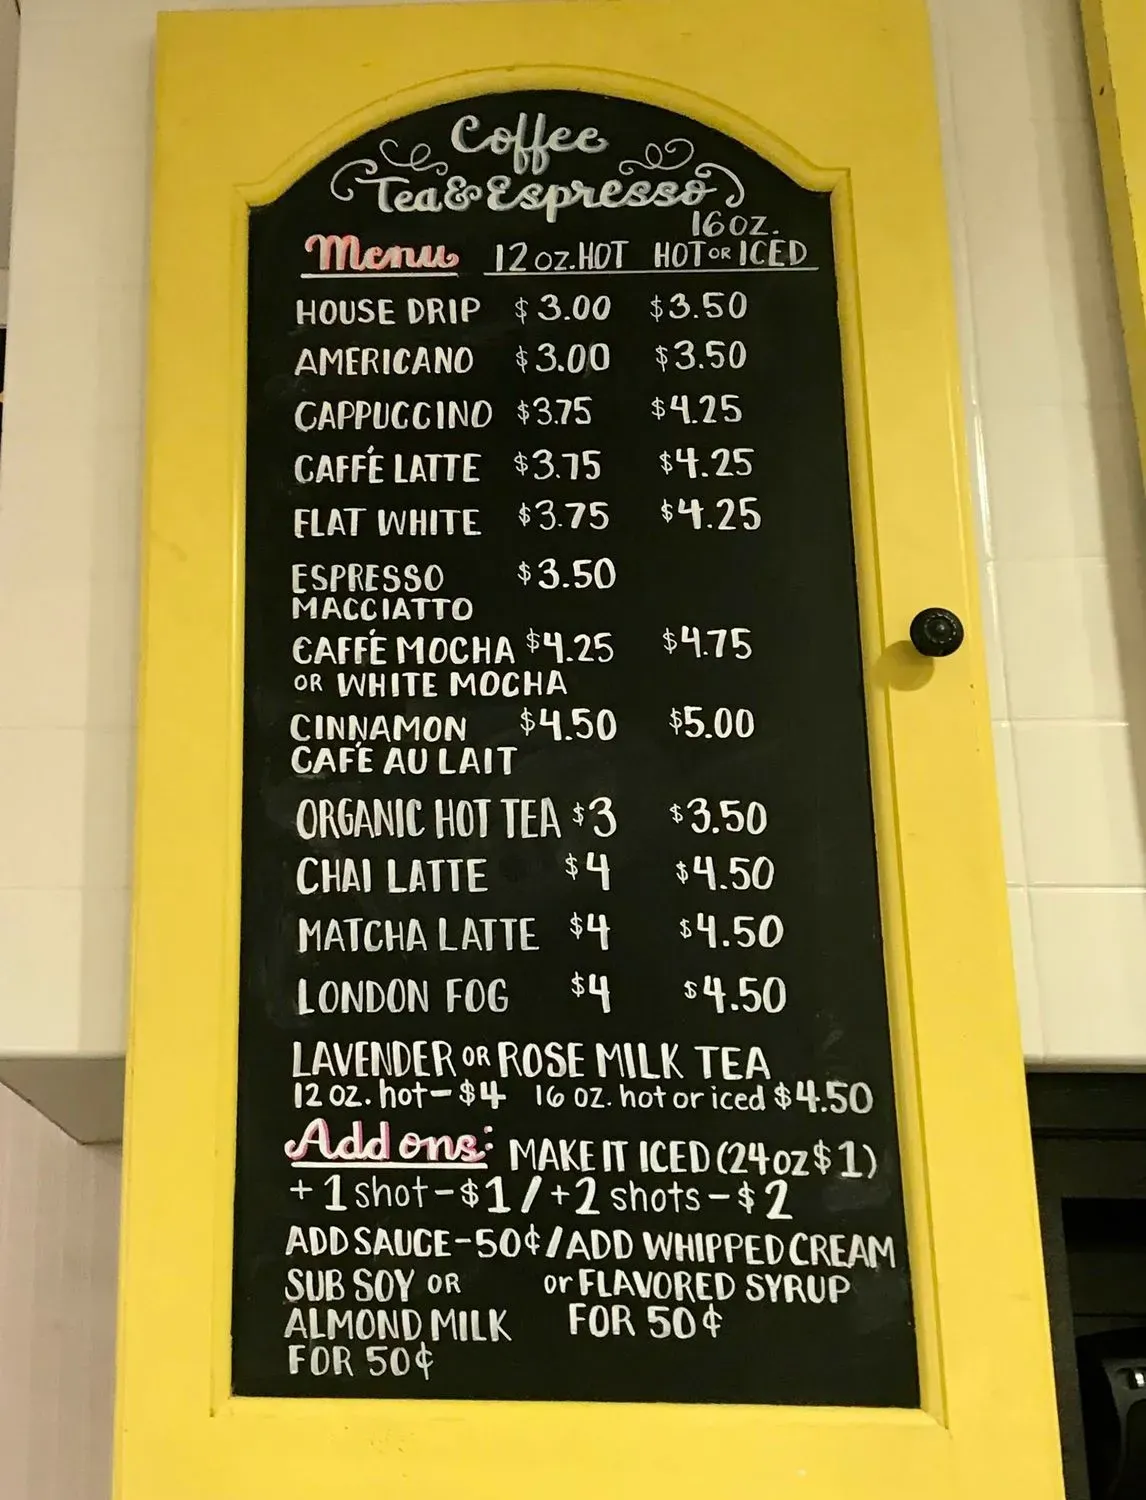 Coffee
Tea & Espresso
16 oz.
Menu 12 oz. HOT HOT OR ICED
HOUSE DRIP $3.00 $3.50
AMERICANO $3.00 $3.50
CAPPUCCINO $3.75 $4.25
CAFFÉ LATTE $3.75 $4.25
FLAT WHITE $3.75 $4.25
ESPRESSO $3.50
MACCIATTO
CAFFÉ MOCHA $4.25 $4.75
OR WHITE MOCHA
CINNAMON $4.50 $5.00
CAFÉ AU LAIT
ORGANIC HOT TEA $3 $3.50
CHAI LATTE $4 $4.50
MATCHA LATTE $4 $4.50
LONDON FOG $4 $4.50
LAVENDER OR ROSE MILK TEA
12 oz. hot-$4 16 oz. hot or iced $4.50
Add ons: MAKE IT ICED (24oz $1)
+1 shot-$1/+2 shots-$2
ADD SAUCE-50¢/ADD WHIPPED CREAM
SUB SOY OR or FLAVORED SYRUP
ALMOND MILK FOR 50¢
FOR 50¢